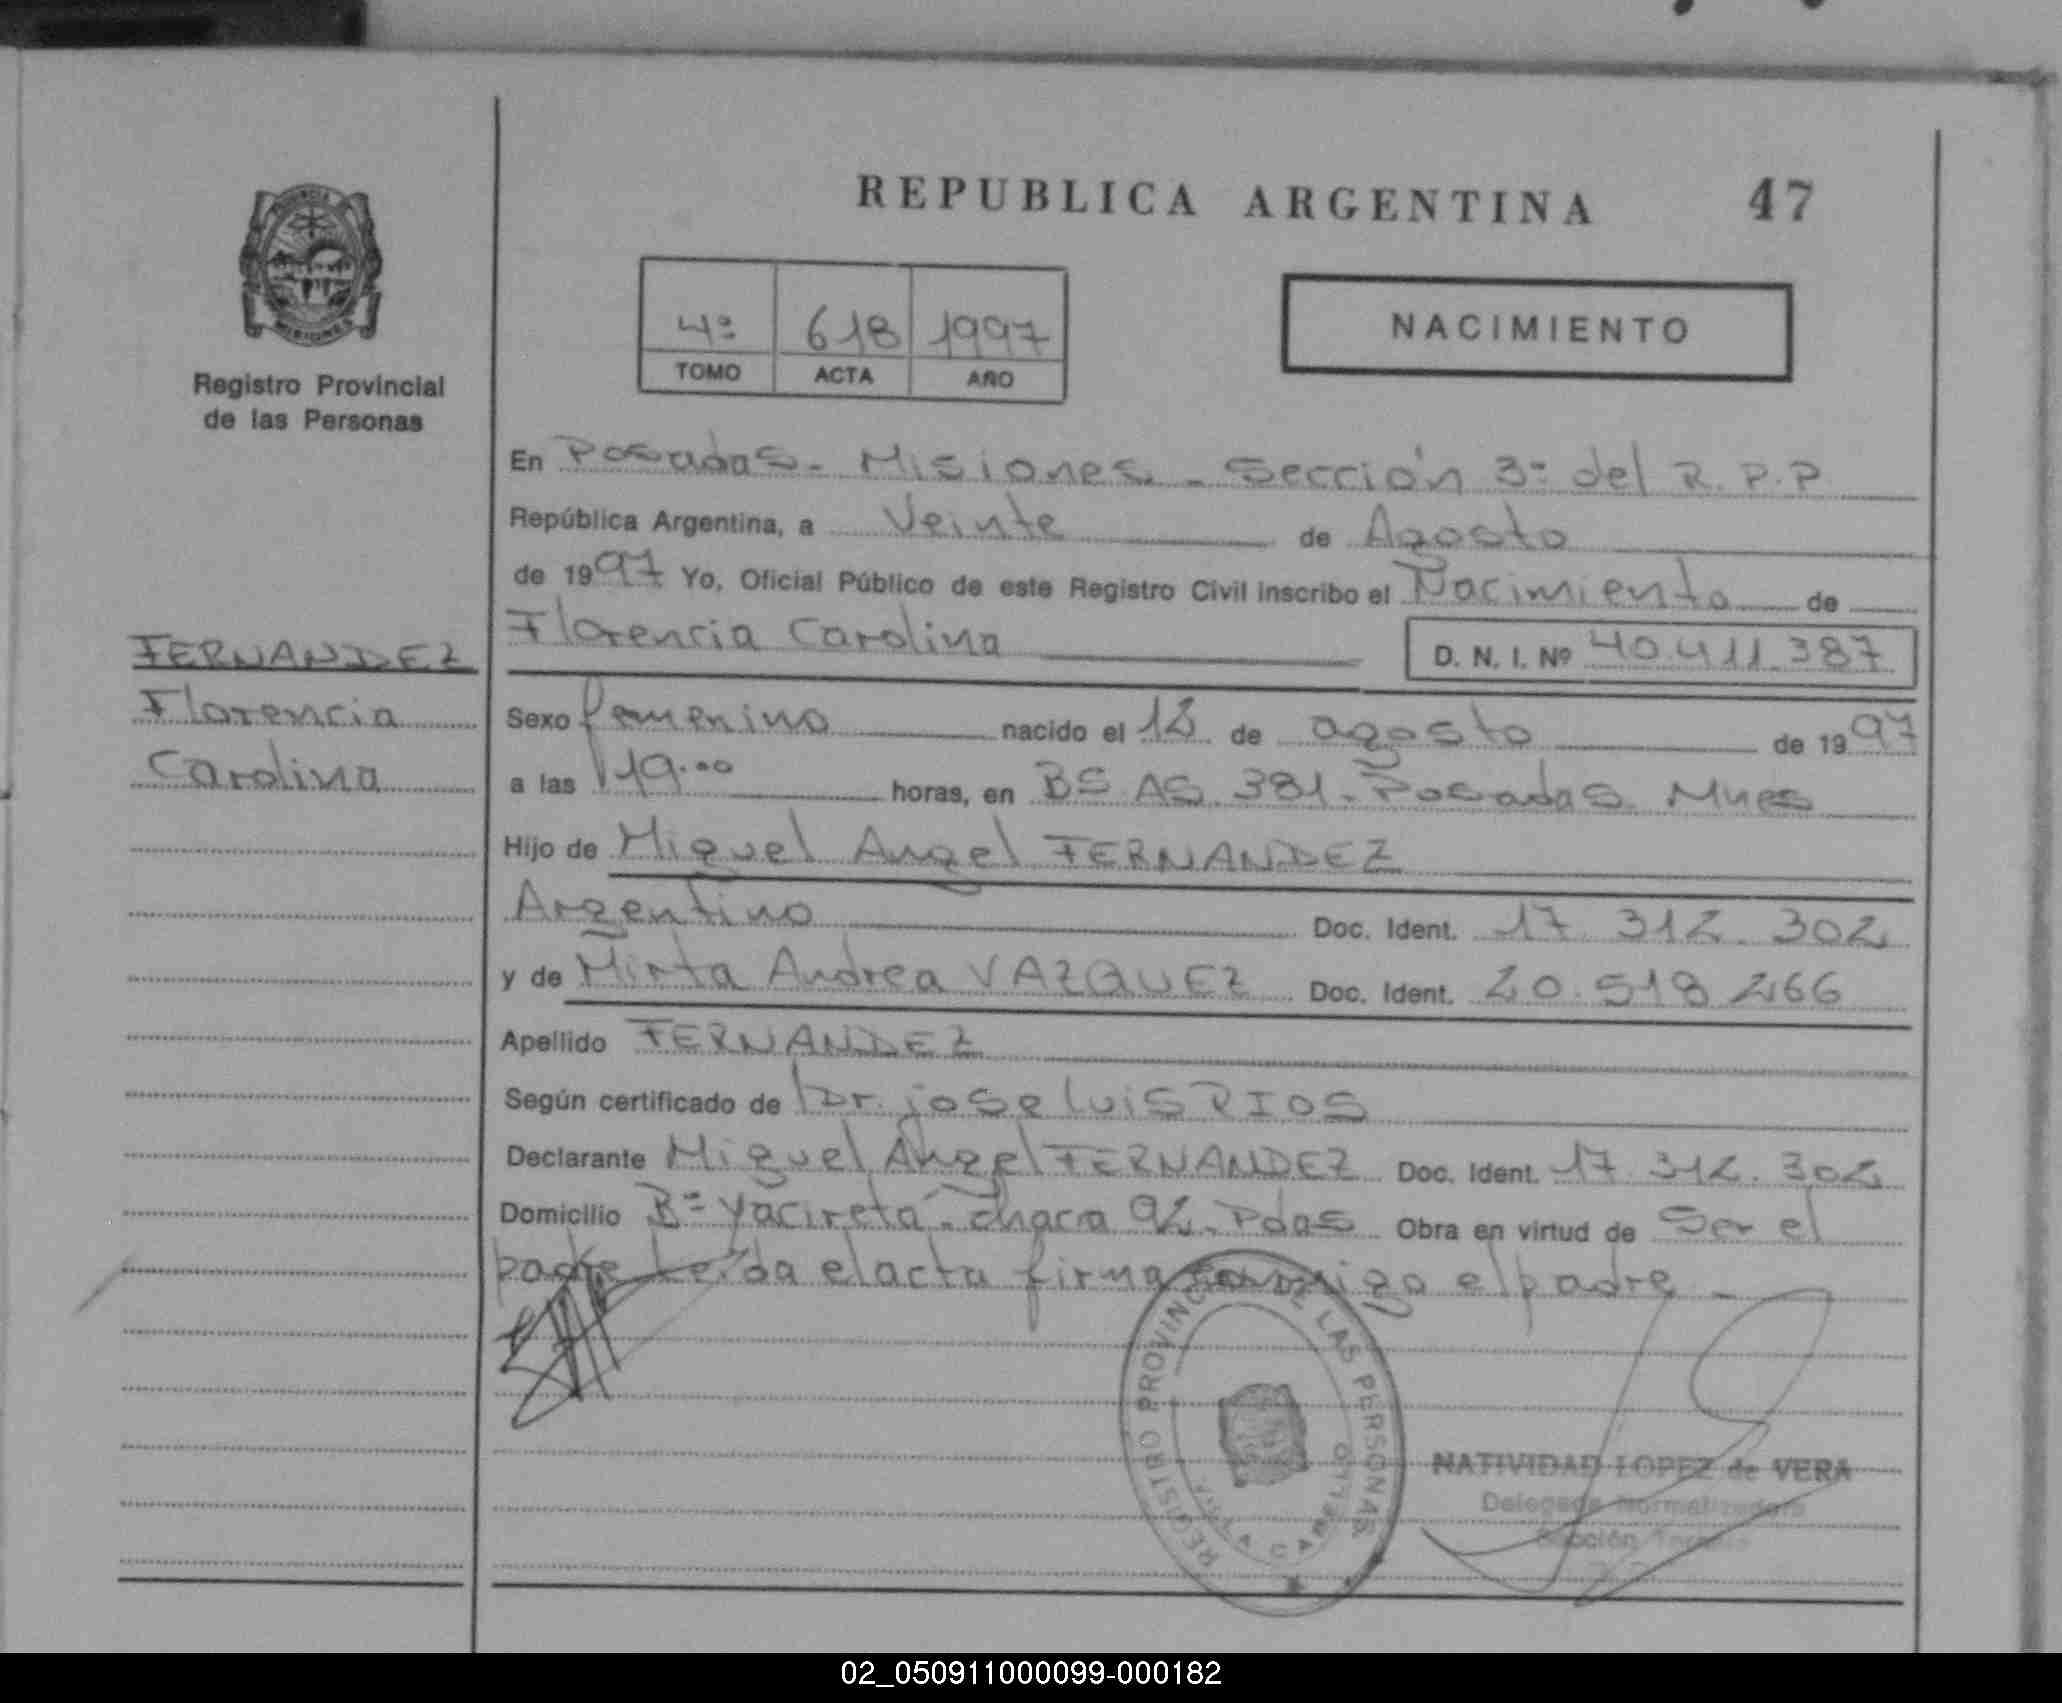 REPUBLICA ARGENTINA 47
4º 618 1997
TOMO ACTA AÑO
NACIMIENTO
MISIONES
Registro Provincial
de las Personas
En Posadas - Misiones - Sección 3º del R.P.P
República Argentina, a Veinte de Agosto
de 1997 Yo, Oficial Público de este Registro Civil inscribo el Nacimiento de
Florencia Carolina D. N. I. Nº 40.411.387
FERNANDEZ
Florencia
Carolina
Sexo femenino nacido el de agosto de 1997
a las 19.00 horas, en BS AS. 381 - Posadas Mnes
Hijo de Miguel Angel FERNANDEZ
Argentino Doc. Ident. 17.312.302
y de Mirta Andrea VAZQUEZ Doc. Ident. 20.518.266
Apellido FERNANDEZ
Según certificado de Dr. jose luis RIOS
Declarante Miguel Angel FERNANDEZ Doc. Ident. 17.312.302
Domicilio Bº Yacireta - chacra 92 - Pdas Obra en virtud de Ser el
padre Leida el acta firma conmigo el padre -
REGISTRO PROVINCIAL DE LAS PERSONAS
VILLA CABELLO
NATIVIDAD LOPEZ de VERA
Delegada Normalizadora
Sección
02_050911000099-000182